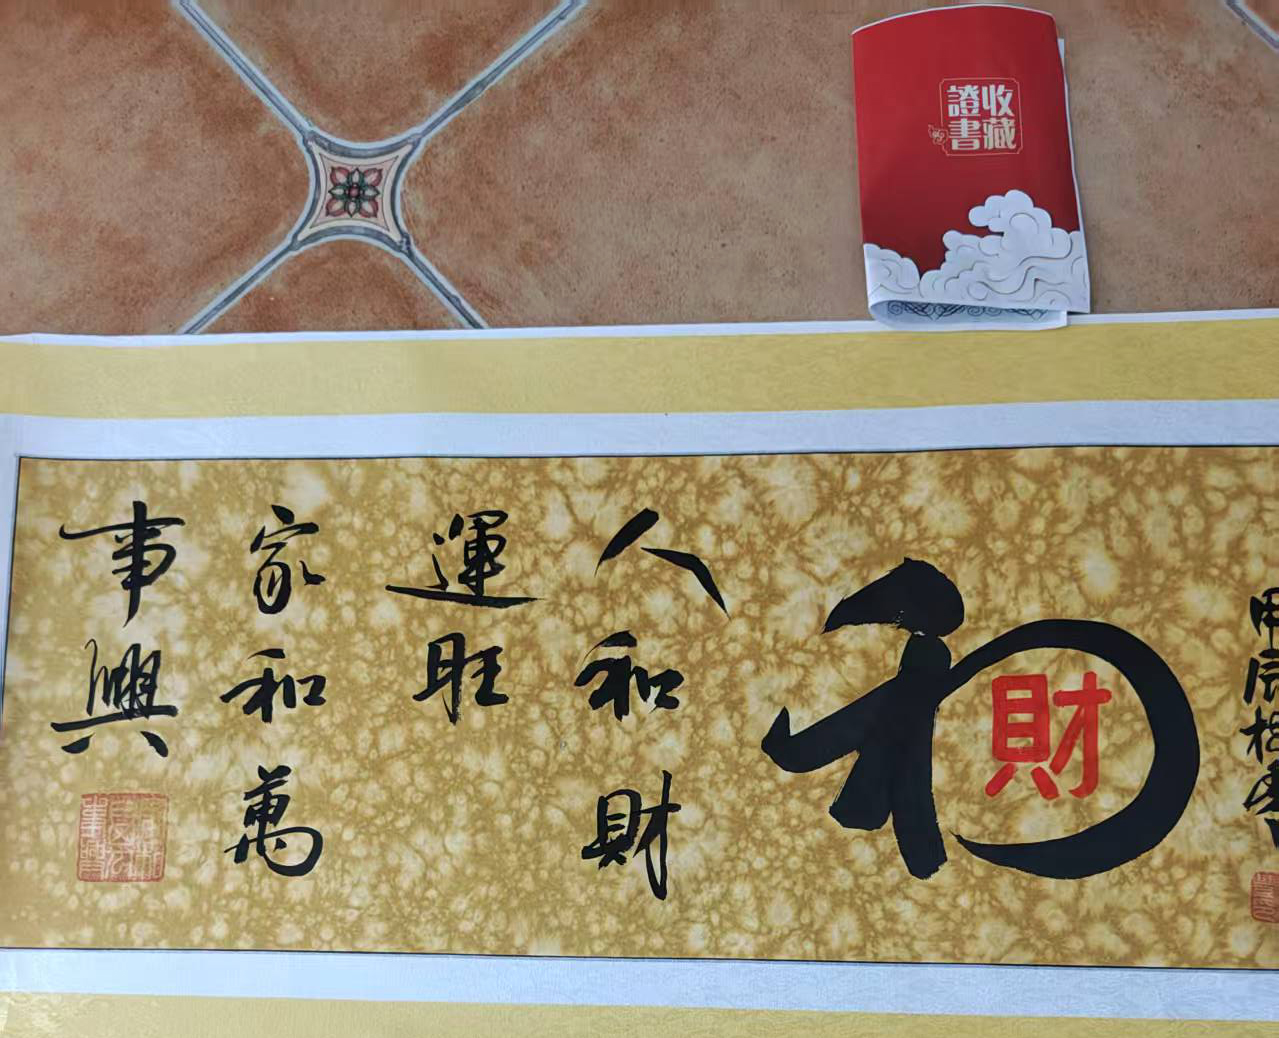 收藏
證書
甲辰
和
財
人和財
運旺
家和萬
事興